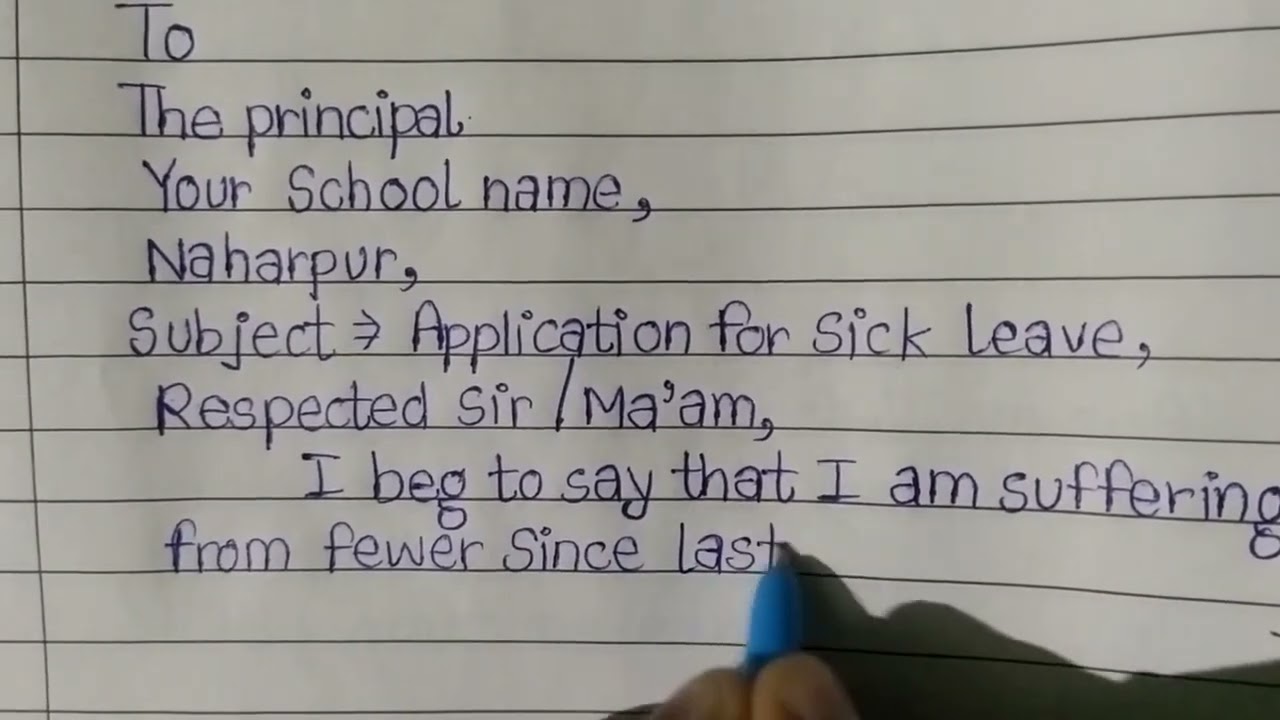 To
The principal.
Your School name,
Naharpur,
Subject → Application for Sick Leave,
Respected Sir / Ma'am,
I beg to say that I am suffering
from fewer Since last